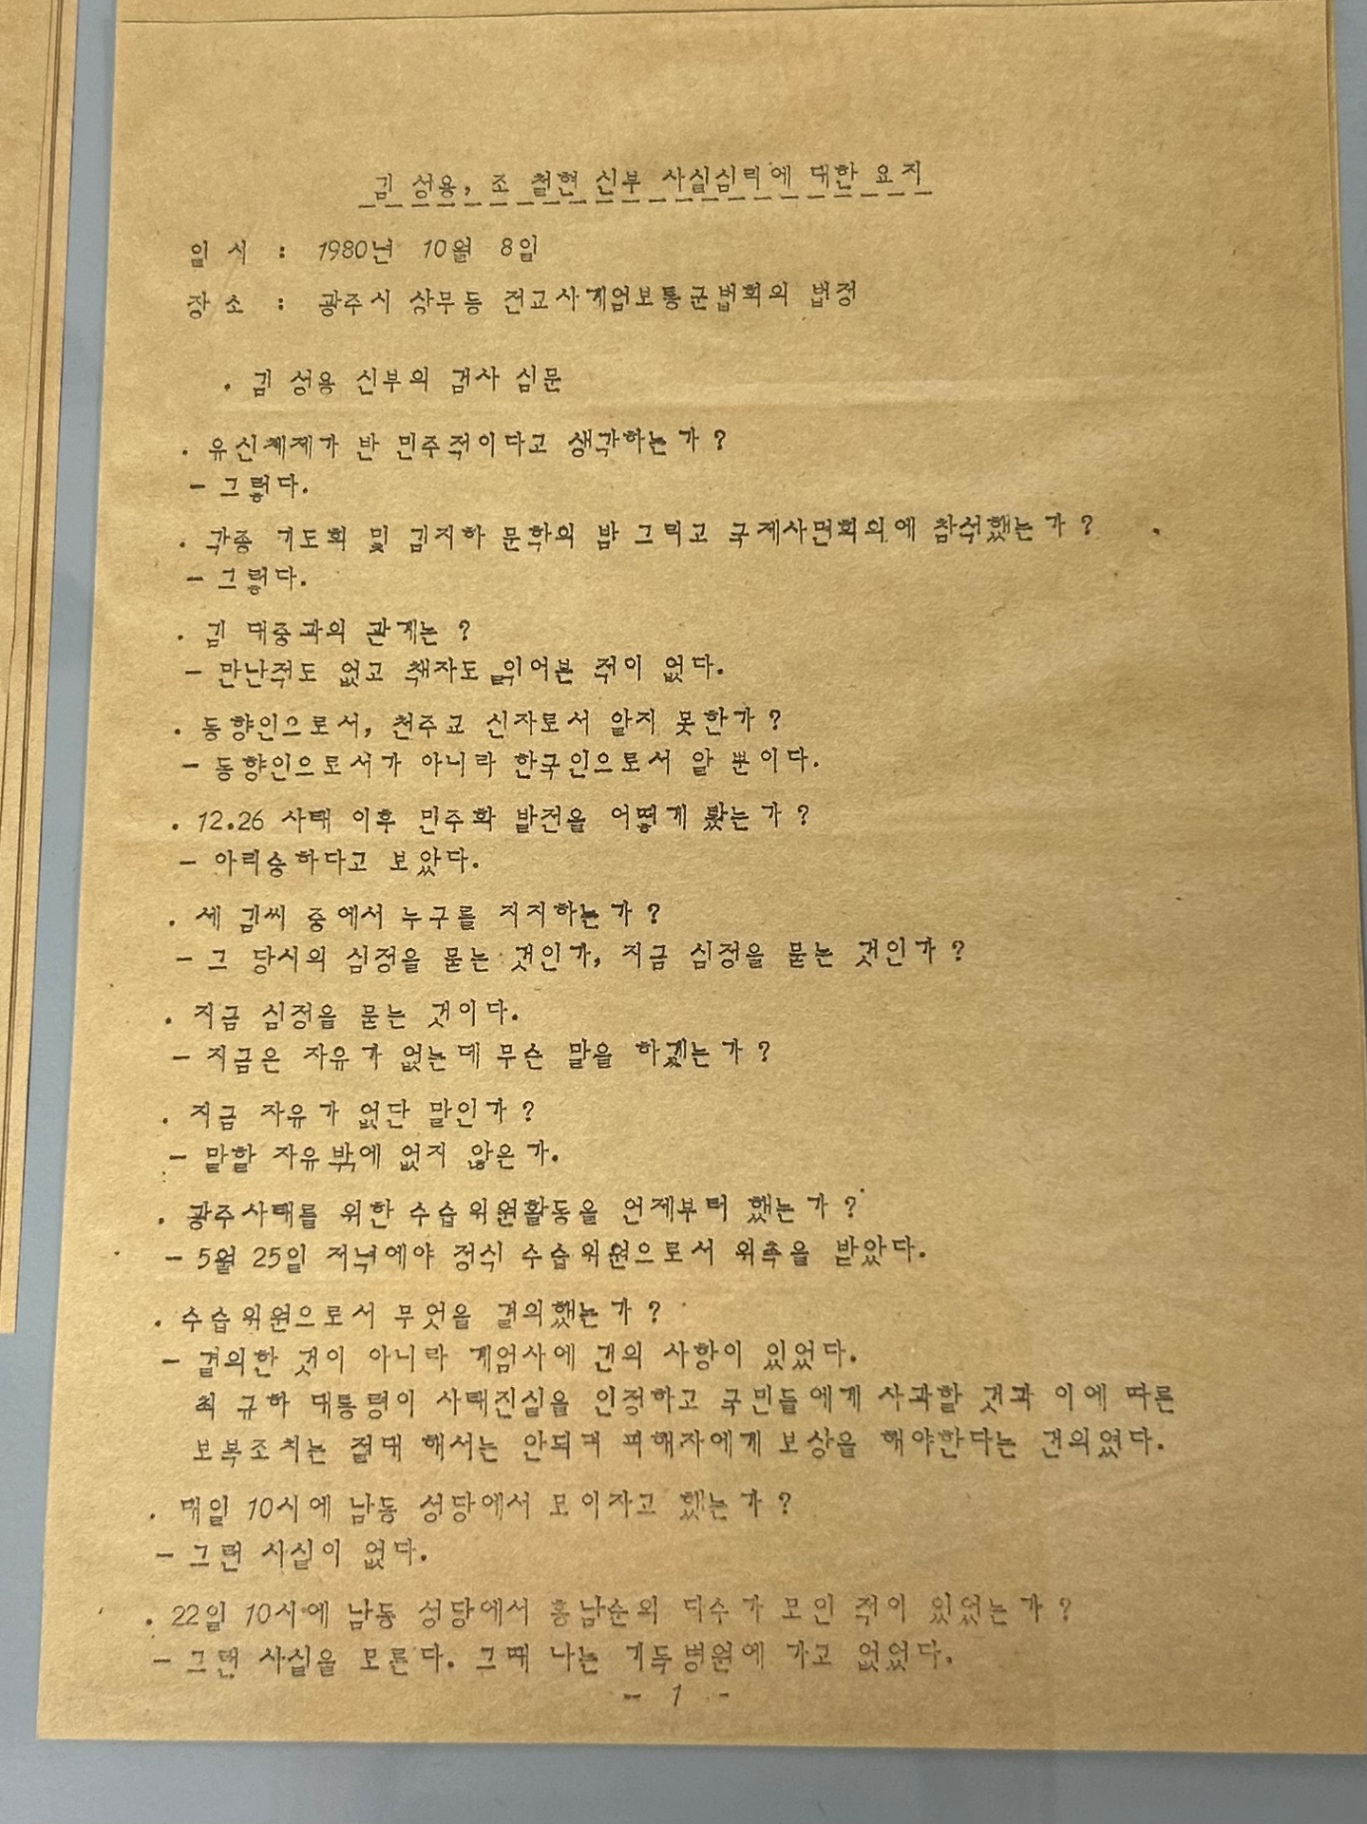 김 성용, 조 철현 신부 사실심리에 대한 요지
일 시 : 1980년 10월 8일
장 소 : 광주시 상무동 전교사계엄보통군법회의 법정
. 김 성용 신부의 검사 심문
. 유신체제가 반 민주적이다고 생각하는가?
- 그렇다.
. 각종 기도회 및 김지하 문학의 밤 그리고 국제사면회의에 참석했는가?
- 그렇다.
. 김 대중과의 관계는 ?
- 만난적도 없고 책자도 읽어본 적이 없다.
. 동향인으로서, 천주교 신자로서 알지 못한가?
- 동향인으로서가 아니라 한국인으로서 알 뿐이다.
. 12.26 사태 이후 민주화 발전을 어떻게 봤는가?
- 아리송하다고 보았다.
. 세 김씨 중에서 누구를 지지하는가?
- 그 당시의 심정을 묻는 것인가, 지금 심정을 묻는 것인가?
. 지금 심정을 묻는 것이다.
- 지금은 자유가 없는데 무슨 말을 하겠는가?
. 지금 자유가 없단 말인가?
- 말할 자유밖에 없지 않은가.
. 광주사태를 위한 수습위원활동을 언제부터 했는가?
- 5월 25일 저녁에야 정식 수습위원으로서 위촉을 받았다.
. 수습위원으로서 무엇을 결의했는가?
- 결의한 것이 아니라 계엄사에 건의 사항이 있었다.
최 규하 대통령이 사태진실을 인정하고 국민들에게 사과할 것과 이에 따른
보복조치는 절대 해서는 안되며 피해자에게 보상을 해야한다는 건의였다.
. 매일 10시에 남동 성당에서 모이자고 했는가?
- 그런 사실이 없다.
. 22일 10시에 남동 성당에서 홍남순외 다수가 모인 적이 있었는가?
- 그런 사실을 모른다. 그때 나는 기독병원에 가고 없었다.
- 1 -